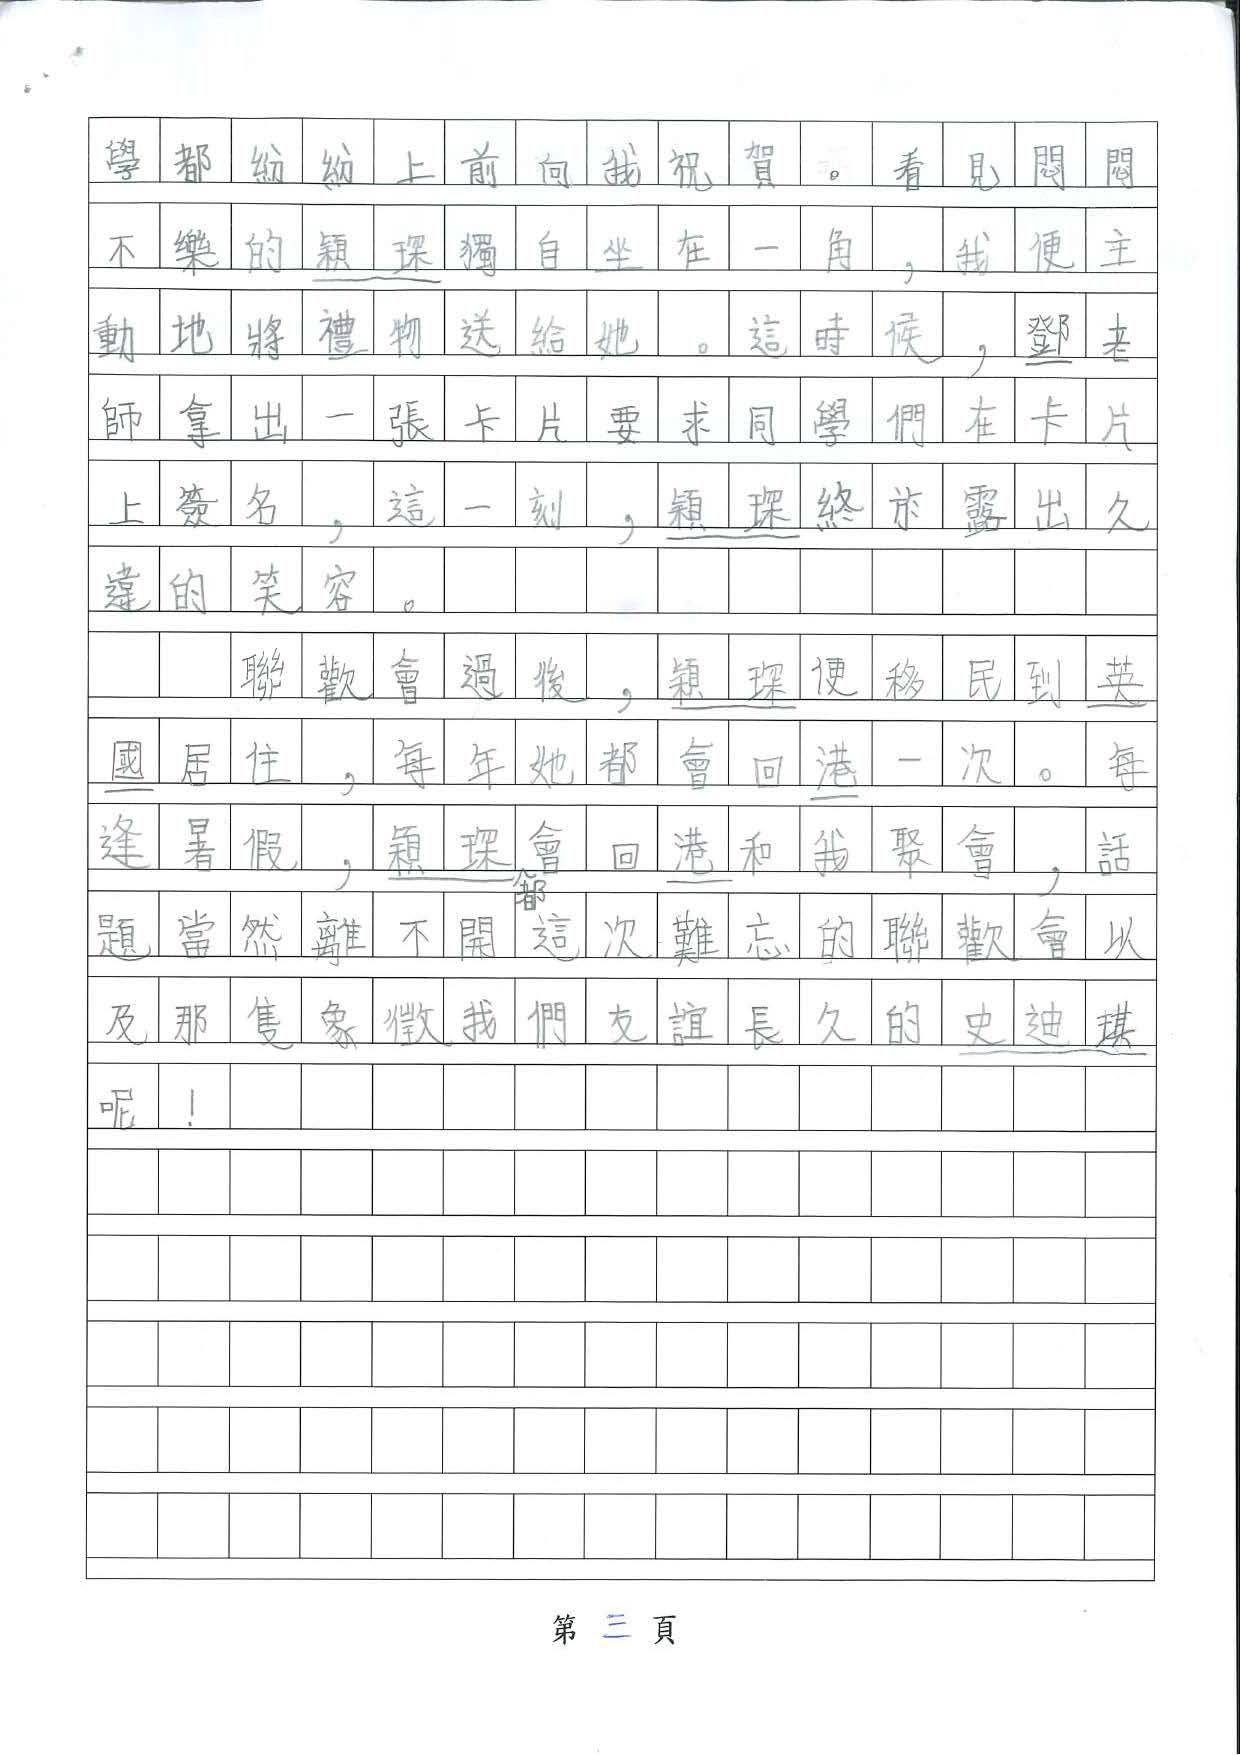 學都紛紛上前向我祝賀。看見悶悶
不樂的穎琛獨自坐在一角，我便主
動地將禮物送給她。這時候，鄧老
師拿出一張卡片要求同學們在卡片
上簽名，這一刻，穎琛終於露出久
違的笑容。
聯歡會過後，穎琛便移民到英
國居住，每年她都會回港一次。每
逢暑假，穎琛都會回港和我聚會，話
題當然離不開這次難忘的聯歡會以
及那隻象徵我們友誼長久的史迪琪
呢！
第三頁